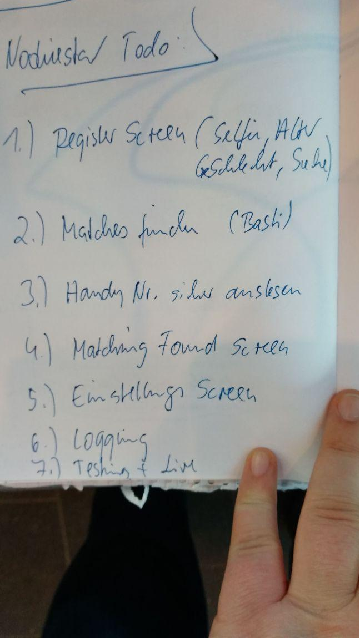 Todo:
1.) Register Screen (Selfie, Alter
Geschlecht, Suche)
2.) Matches finden (Basti)
3.) Handy Nr. sicher auslesen
4.) Matching Found Screen
5.) Einstellungs Screen
6.) Logging
7.) Testing + Live